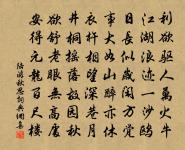 利欲驅人萬火牛
江湖浪迹一沙鷗
日長似歲閑方覺
事大如山醉亦休
衣杵相望深巷月
井桐搖落故園秋
欲舒老眼無高處
安得元龍百尺樓
陸游秋思詞典網集